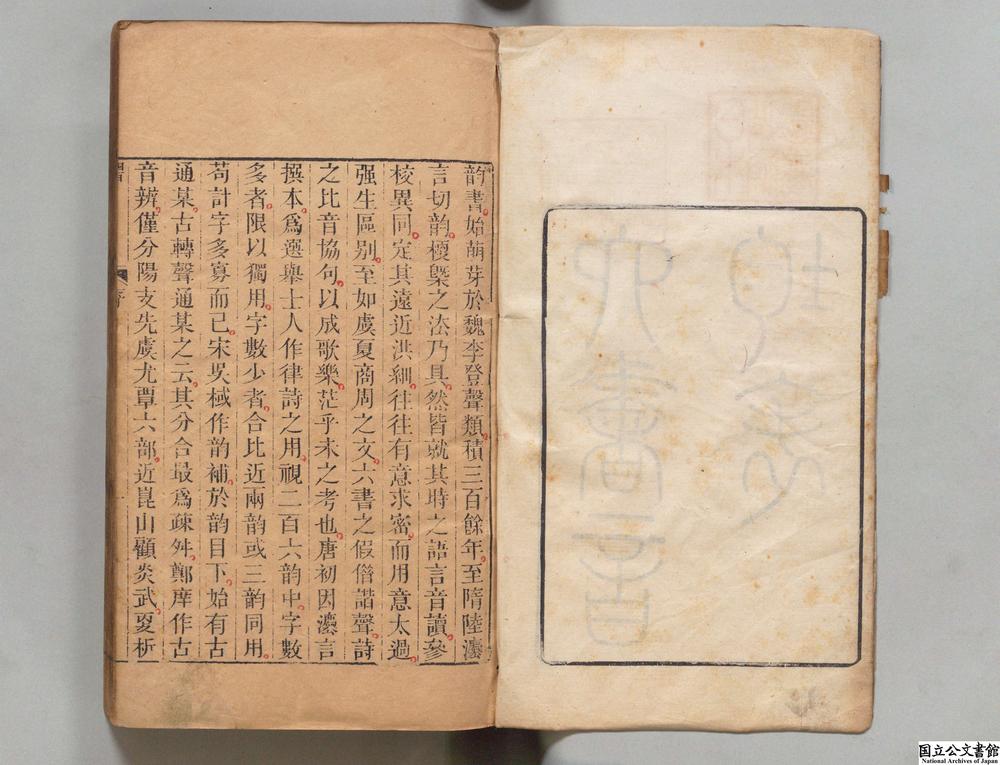 韵書始萌芽於魏李登聲類積三百餘年至隋陸灋
言切韵梗槩之法乃具然皆就其時之語言音讀參
校異同定其遠近洪細往往有意求密而用意太過
强生區別至如虞夏商周之文六書之假借諧聲詩
之比音協句以成歌樂茫乎未之考也唐初因灋言
撰本爲選舉士人作律詩之用視二百六韵中字數
多者限以獨用字數少者合比近兩韵或三韵同用
苟計字多寡而已宋吳棫作韵補於韵目下始有古
通某古轉聲通某之云其分合最爲疎舛鄭庠作古
音辨僅分陽支先虞尤覃六部近崑山顧炎武㪅析
序
国立公文書館
National Archives of Japan